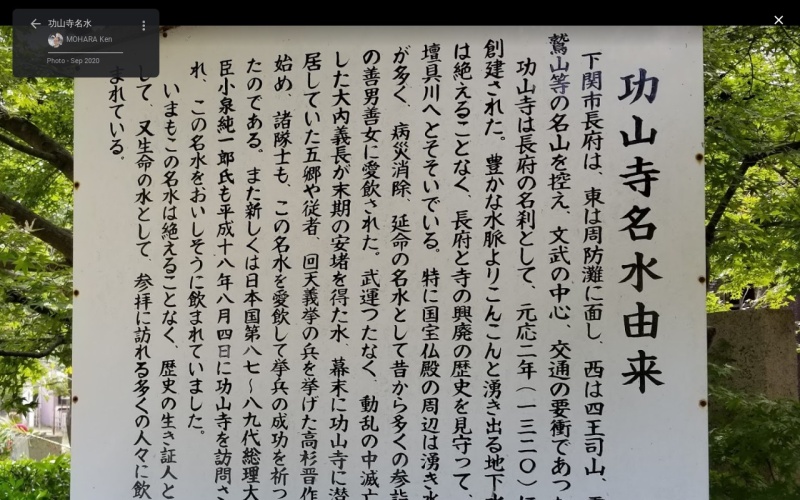 功山寺名水
MOHARA Ken
Photo - Sep 2020
功山寺名水由来
下関市長府は、東は周防灘に面し、西は四王司山、
鷲山等の名山を控え、文武の中心、交通の要衝であった
功山寺は長府の名刹として、元応二年(一三二〇)に
創建された。豊かな水脈よりこんこんと湧き出る地下水
は絶えることなく、長府と寺の興廃の歴史を見守って、
壇具川へとそそいでいる。特に国宝仏殿の周辺は湧き水
が多く、病災消除、延命の名水として昔から多くの参詣
の善男善女に愛飲された。武運つたなく、動乱の中滅亡
した大内義長が末期の安堵を得た水、幕末に功山寺に潜
居していた五郷や従者、回天義挙の兵を挙げた高杉晋作
始め、諸隊士も、この名水を愛飲して挙兵の成功を祈っ
たのである。また新しくは日本国第八七〜八九代総理大
臣小泉純一郎氏も平成十八年八月四日に功山寺を訪問さ
れ、この名水をおいしそうに飲まれていました。
いまもこの名水は絶えることなく、歴史の生き証人と
して、又生命の水として、参拝に訪れる多くの人々に飲
まれている。